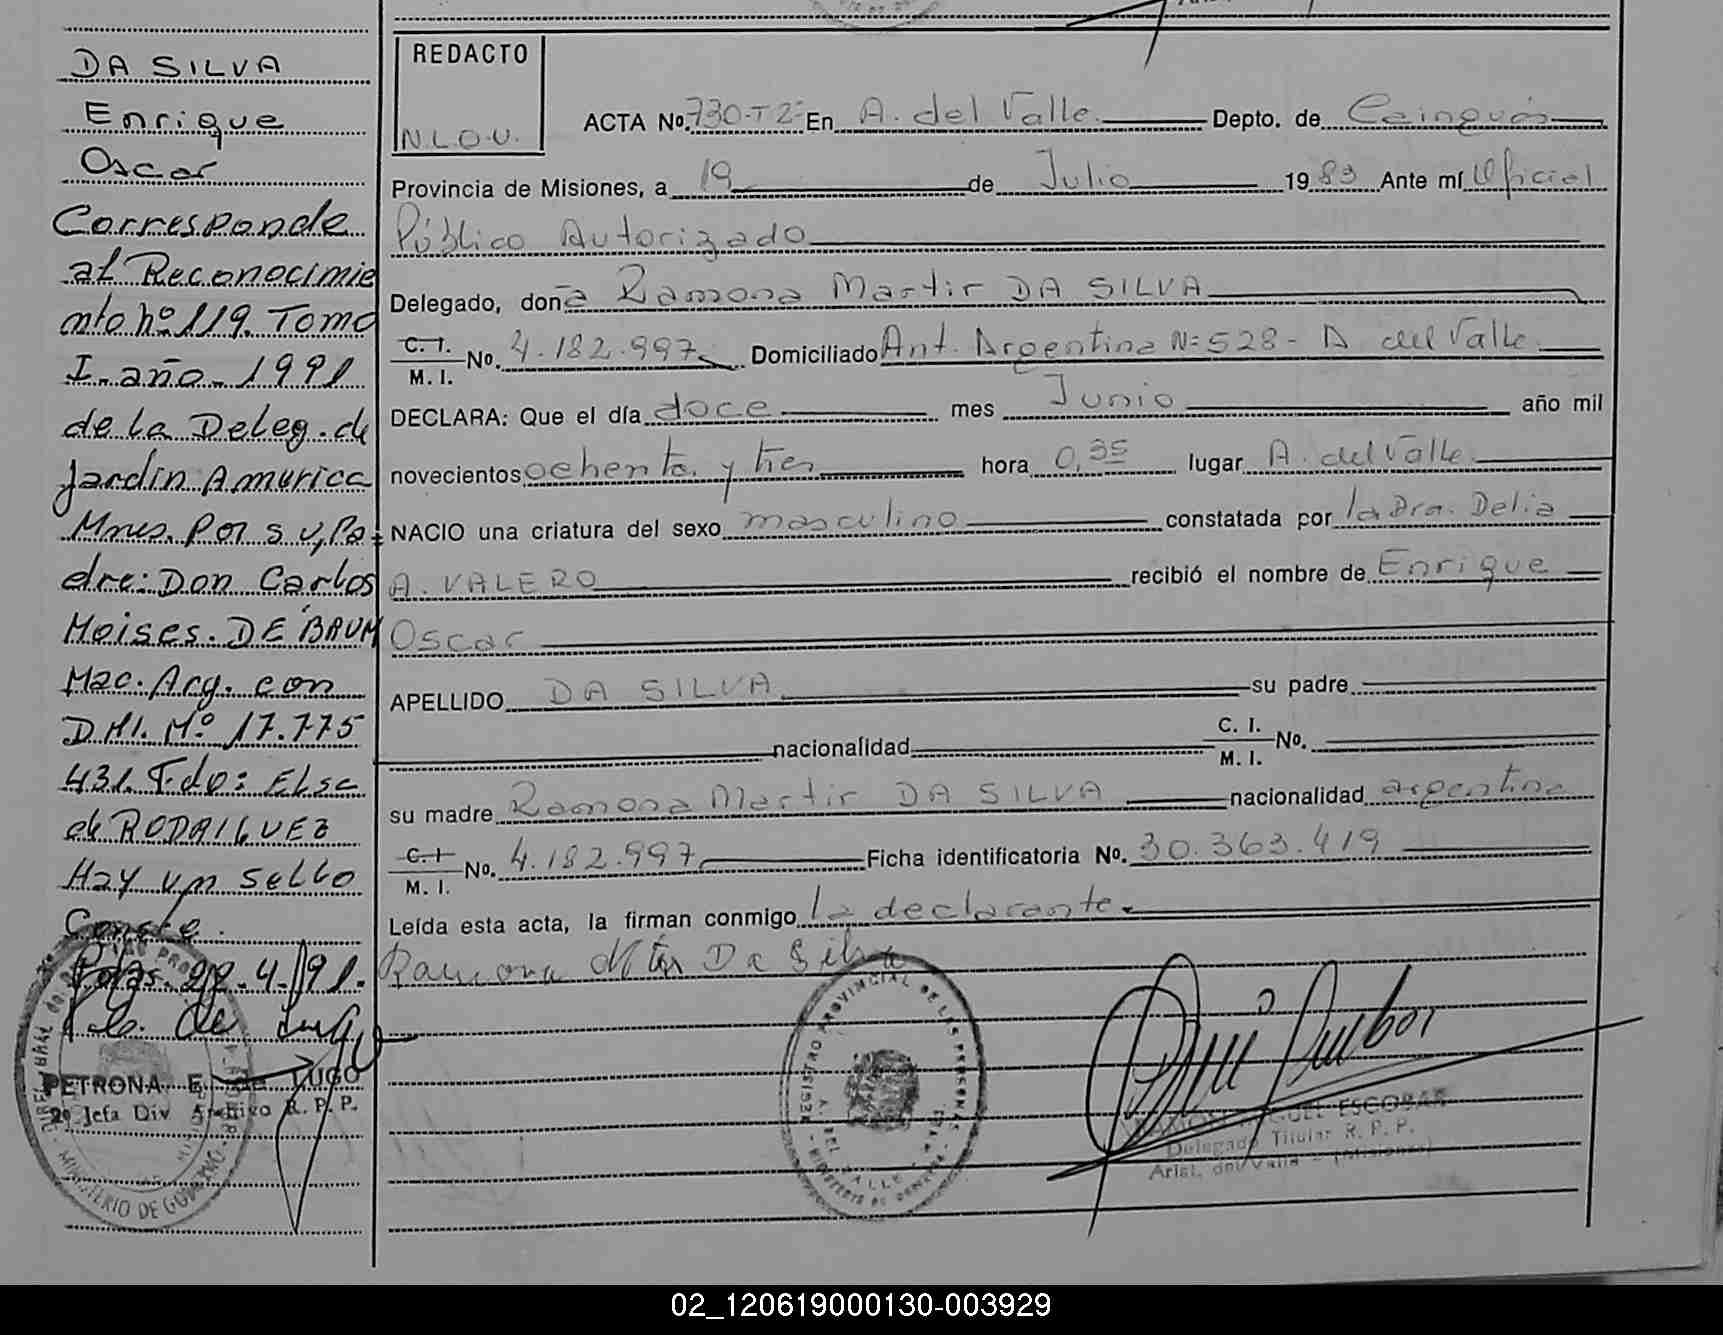 DA SILVA
Enrique
Oscar
Corresponde
al Reconocimie
nto nº 119. Tomo
I. año. 1991
de la Deleg. de
Jardin America
Mnes. Por s u, Pa
dre: Don Carlos
Moises. DE BAUM
Mac. Arg. con
D.M.I. Nº 17.775
431. Fdo: Elsa
de RODRIGUEZ
Hay un sello
Conste.
Pdas. 22.4.91.
PETRONA E. de LUGO
2º Jefa Div Archivo R. P. P.
MINISTERIO DE GOBIERNO
REDACTO
N.L.O.V.
ACTA No. 730-T2º En A. del Valle Depto. de Cainguás
Provincia de Misiones, a 19 de Julio 1983 Ante mí Oficial
Público Autorizado
Delegado, doña Ramona Martir DA SILVA
C. I. M. I. No. 4.182.997 Domiciliado Ant. Argentina Nº 528 - A. del Valle
DECLARA: Que el día doce mes Junio año mil
novecientos ochenta y tres hora 0,35 lugar A. del Valle
NACIO una criatura del sexo masculino constatada por la Dra. Delia
A. VALERO recibió el nombre de Enrique
Oscar
APELLIDO DA SILVA su padre
nacionalidad C. I. M. I. No.
su madre Ramona Martir DA SILVA nacionalidad argentina
C. I M. I. No. 4.182.997 Ficha identificatoria No. 30.363.419
Leída esta acta, la firman conmigo la declarante.
Ramona Mtir Da Silva
REGISTRO PROVINCIAL DE LAS PERSONAS
A. DEL VALLE
RAMON MIGUEL ESCOBAR
Delegado Titular R. P. P.
Arist. del Valle - (Misiones)
02_120619000130-003929